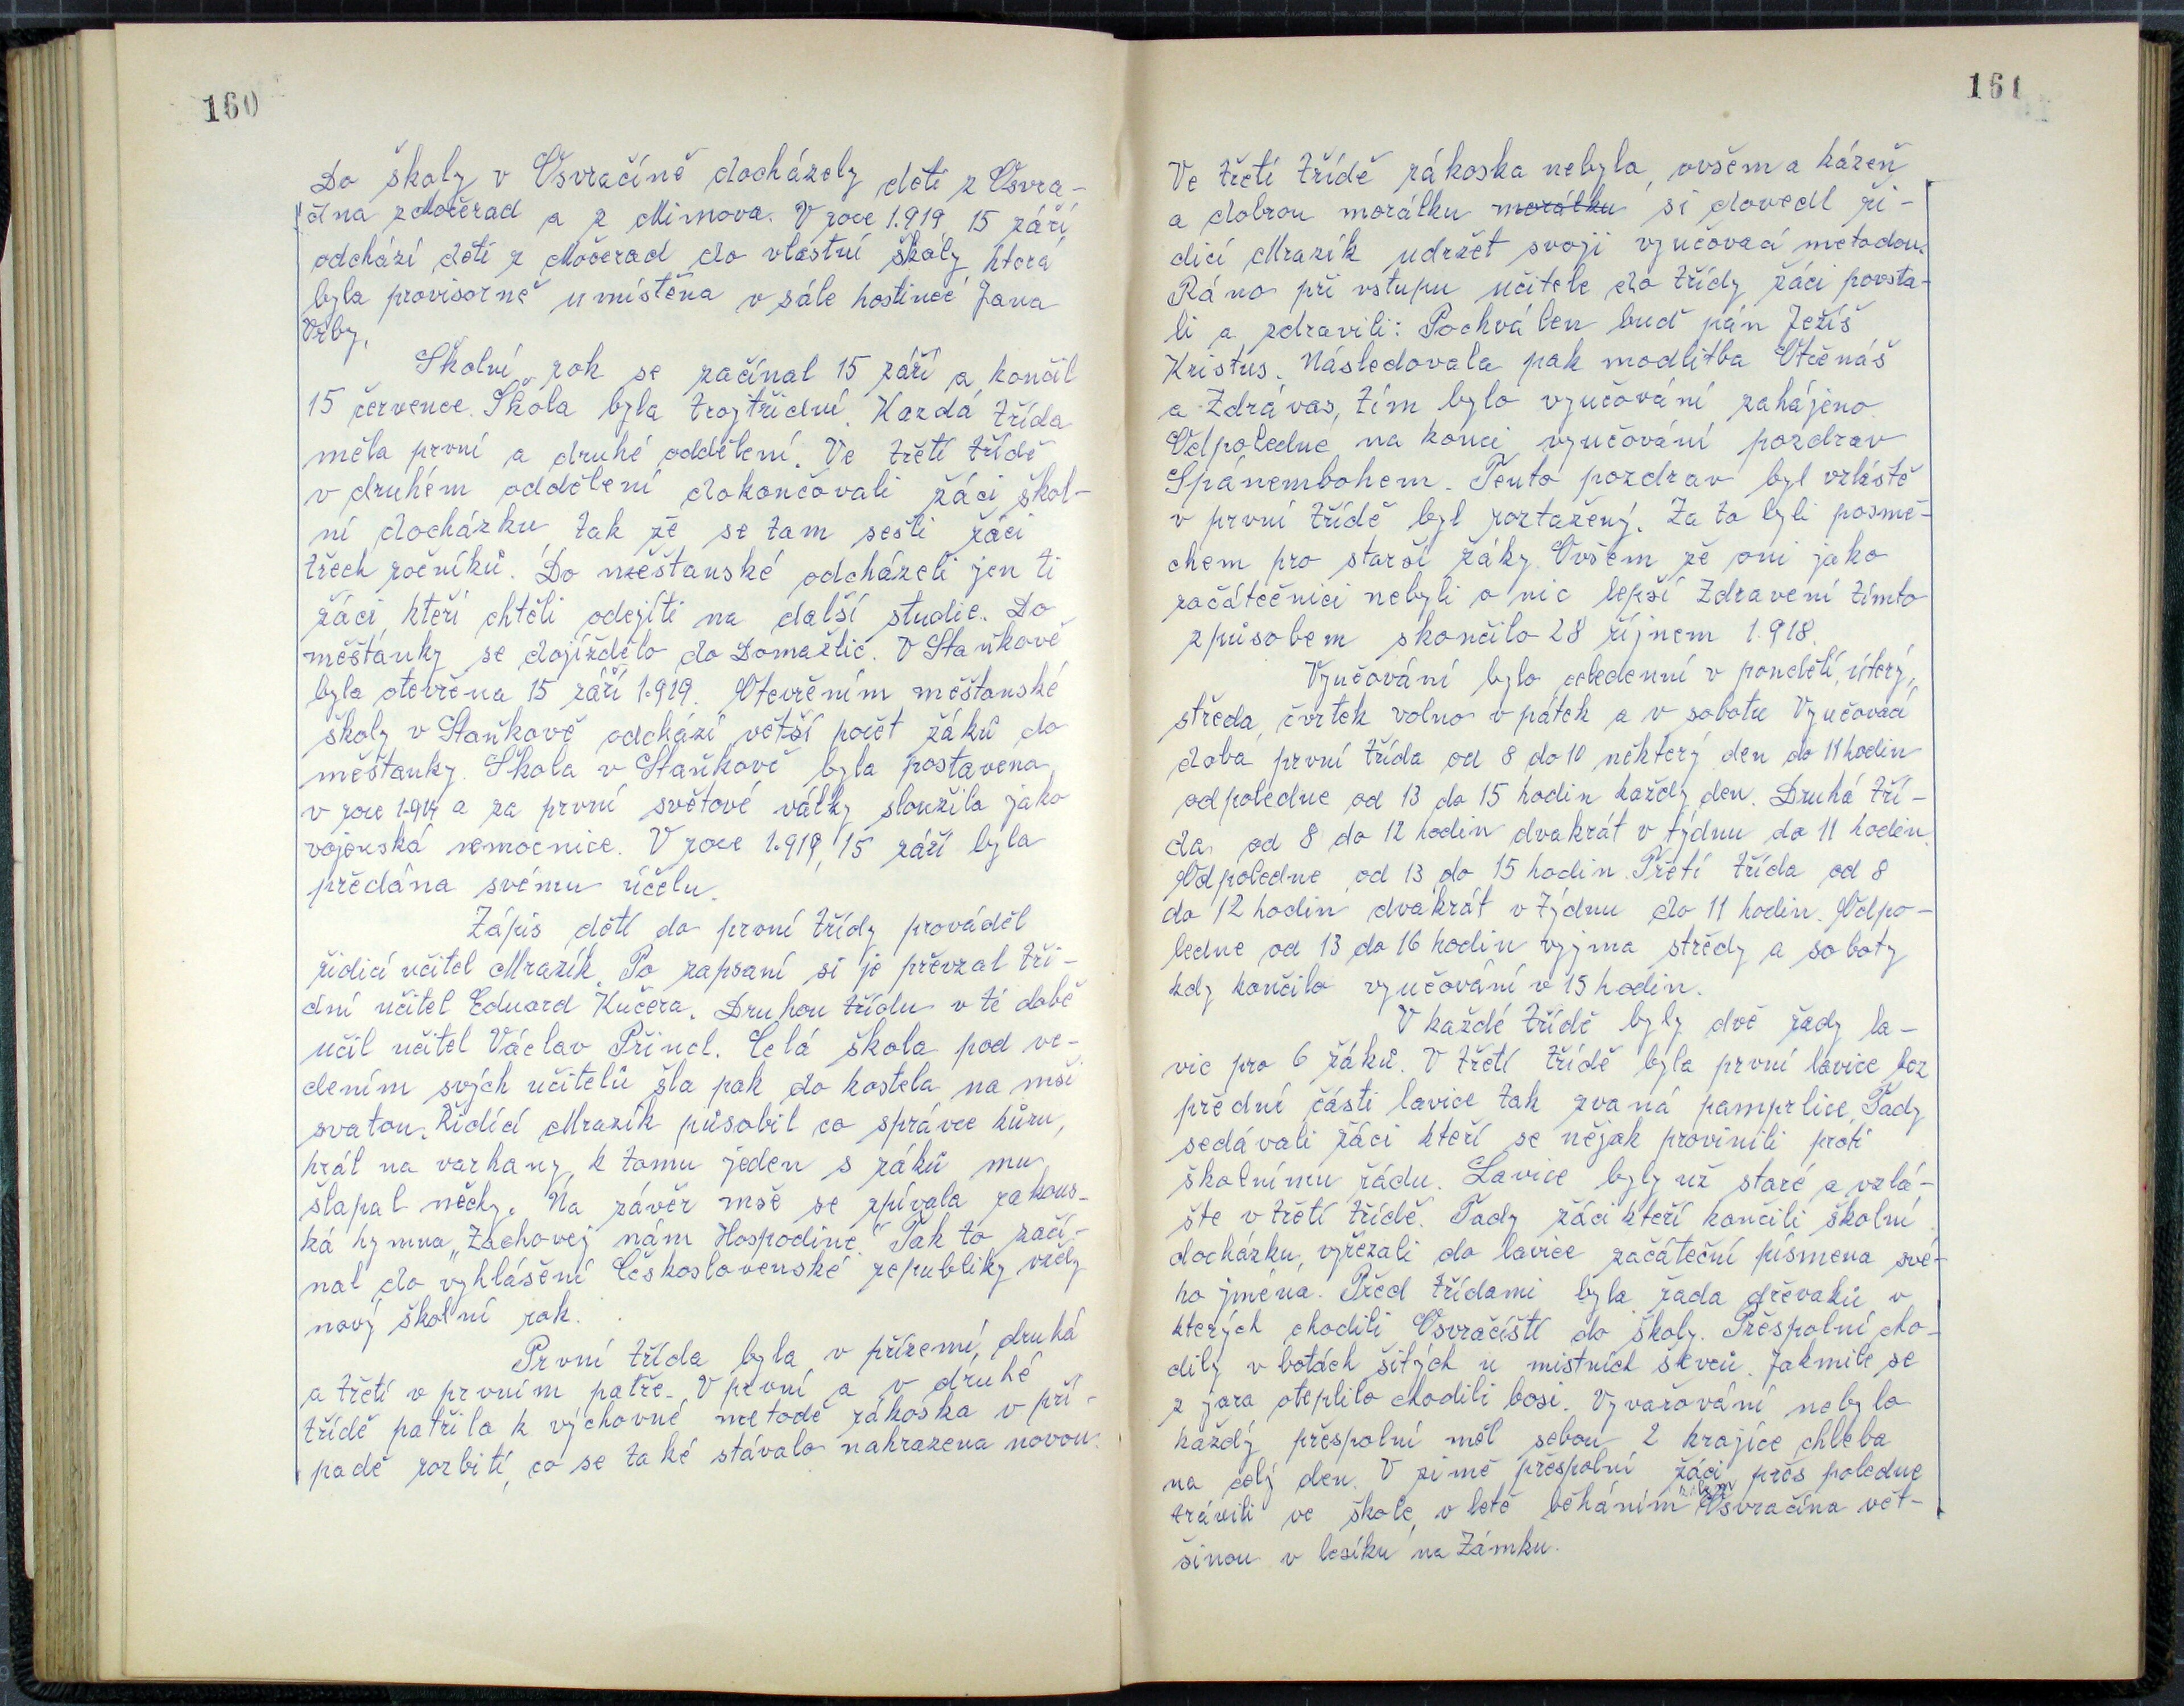 160
Do školy v Osvračíně docházely děti z Osvra-
čína z Močerad a z Mimova. V roce 1.919 15 září
odchází děti z Močerad do vlastní školy, která
byla provisorně umístěna v sále hostince Jana
Vrby.
Školní rok se začínal 15 září a končil
15 července. Škola byla trojtřídní. Kazdá třída
měla první a druhé oddělení. Ve třetí třídě
v druhém oddělení dokončovali žáci škol-
ní docházku, tak že se tam sešli žáci
třech ročníků. Do měšťanské odcházeli jen ti
žáci, kteří chtěli odejíti na další studie. Do
měšťanky se dojíždělo do Domažlic. V Staňkově
byla otevřena 15 září 1.919. Otevřením měšťanské
školy v Staňkově odchází větší počet žáků do
měšťanky. Škola v Staňkově byla postavena
v roce 1.914 a za první světové války sloužila jako
vojenská nemocnice. V roce 1.919, 15 září byla
předána svému účelu.
Zápis dětí do první třídy prováděl
řidicí učitel Mrazík. Po zapsaní si je převzal tří-
dní učitel Eduard Kučera. Druhou třídu v té době
učil učitel Václav Přincl. Celá škola pod ve-
dením svých učitelů šla pak do kostela na mši
svatou. Řídící Mrazík působil co správce kůru,
hrál na varhany, k tomu jeden s žáků mu
šlapal měchy. Na závěr mše se zpívala rakous-
ká hymna „Zachovej nám Hospodine." Tak to začí-
nal do vyhlášení Československé republiky vždy
nový školní rok.
První třída byla v přízemí, druhá
a třetí v prvním patře. V první a v druhé
třídě patřila k výchovné metodě rákoska v pří-
padě rozbití, co se také stávalo nahrazena novou.
161
Ve třetí třídě rákoska nebyla, ovšem a kázeň
a dobrou morálku morálku si dovedl ři-
dicí Mrazík udržet svoji vyučovací metodou.
Ráno při vstupu učitele do třídy žáci povsta-
li a zdravili: Pochválen buď pán Ježíš
Kristus. Následovala pak modlitba Otčenáš
a Zdrávas, tím bylo vyučování zahájeno.
Odpoledne na konci vyučování pozdrav
Spánembohem. Tento pozdrav byl vzláště
v první třídě byl roztažený. Za to byli posmě-
chem pro starší žáky. Ovšem že oni jako
začátečnici nebyli o nic lepší Zdravení tímto
způsobem skončilo 28 říjnem 1.918.
Vyučování bylo celedenní v pondělí, úterý,
středa, čvrtek volno v pátek a v sobotu Vyučovací
doba první třída od 8 do 10 některý den do 11 hodin
odpoledne od 13 do 15 hodin každy den. Druhá tří-
da od 8 do 12 hodin dvakrát v týdnu do 11 hodin.
Odpoledne od 13 do 15 hodin. Třetí třída od 8
do 12 hodin dvakrát v týdnu do 11 hodin. Odpo-
ledne od 13 do 16 hodin vyjma středy a soboty
kdy končilo vyučování v 15 hodin.
V každé třídě byly dvě řady la-
vic pro 6 žáků. V třetí třídě byla první lavice bez
přední části lavice tak zvaná pamprlice. Tady
sedávali žáci kteří se nějak provinili proti
školnímu řádu. Lavice byly už staré a vzlá-
ště v třetí třídě. Tady žáci kteří končili školní
docházku, vyřezali do lavice začáteční písmena své-
ho jména. Před třídami byla řada dřevaků v
kterých chodili Osvračíští do školy. Přespolní cho-
dily v botách šitých u místních ševců. Jakmile se
z jara oteplilo chodili bosi. Vyvařování nebylo
každý přespolní měl sebou 2 krajíce chleba
na celý den. V zimě přespolní žáci přes poledne
trávili ve škole, v letě běháním Osvračína vět-
šinou v lesíku na Zámku.